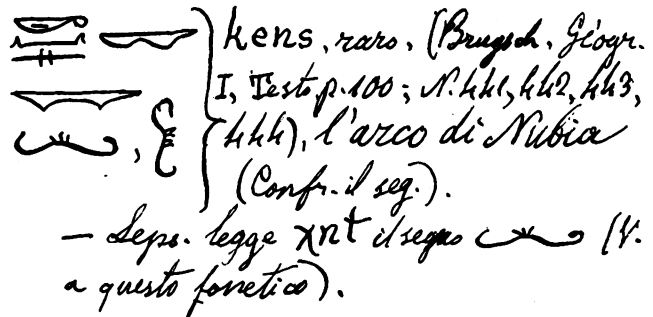 kens, raro, (Brugsch. Géogr.
I, Testo p. 100; N. 441, 442, 443,
444), l'arco di Nubia
(Confr. il seg.).
— Leps. legge χnt il segno (V.
a questo fonetico).